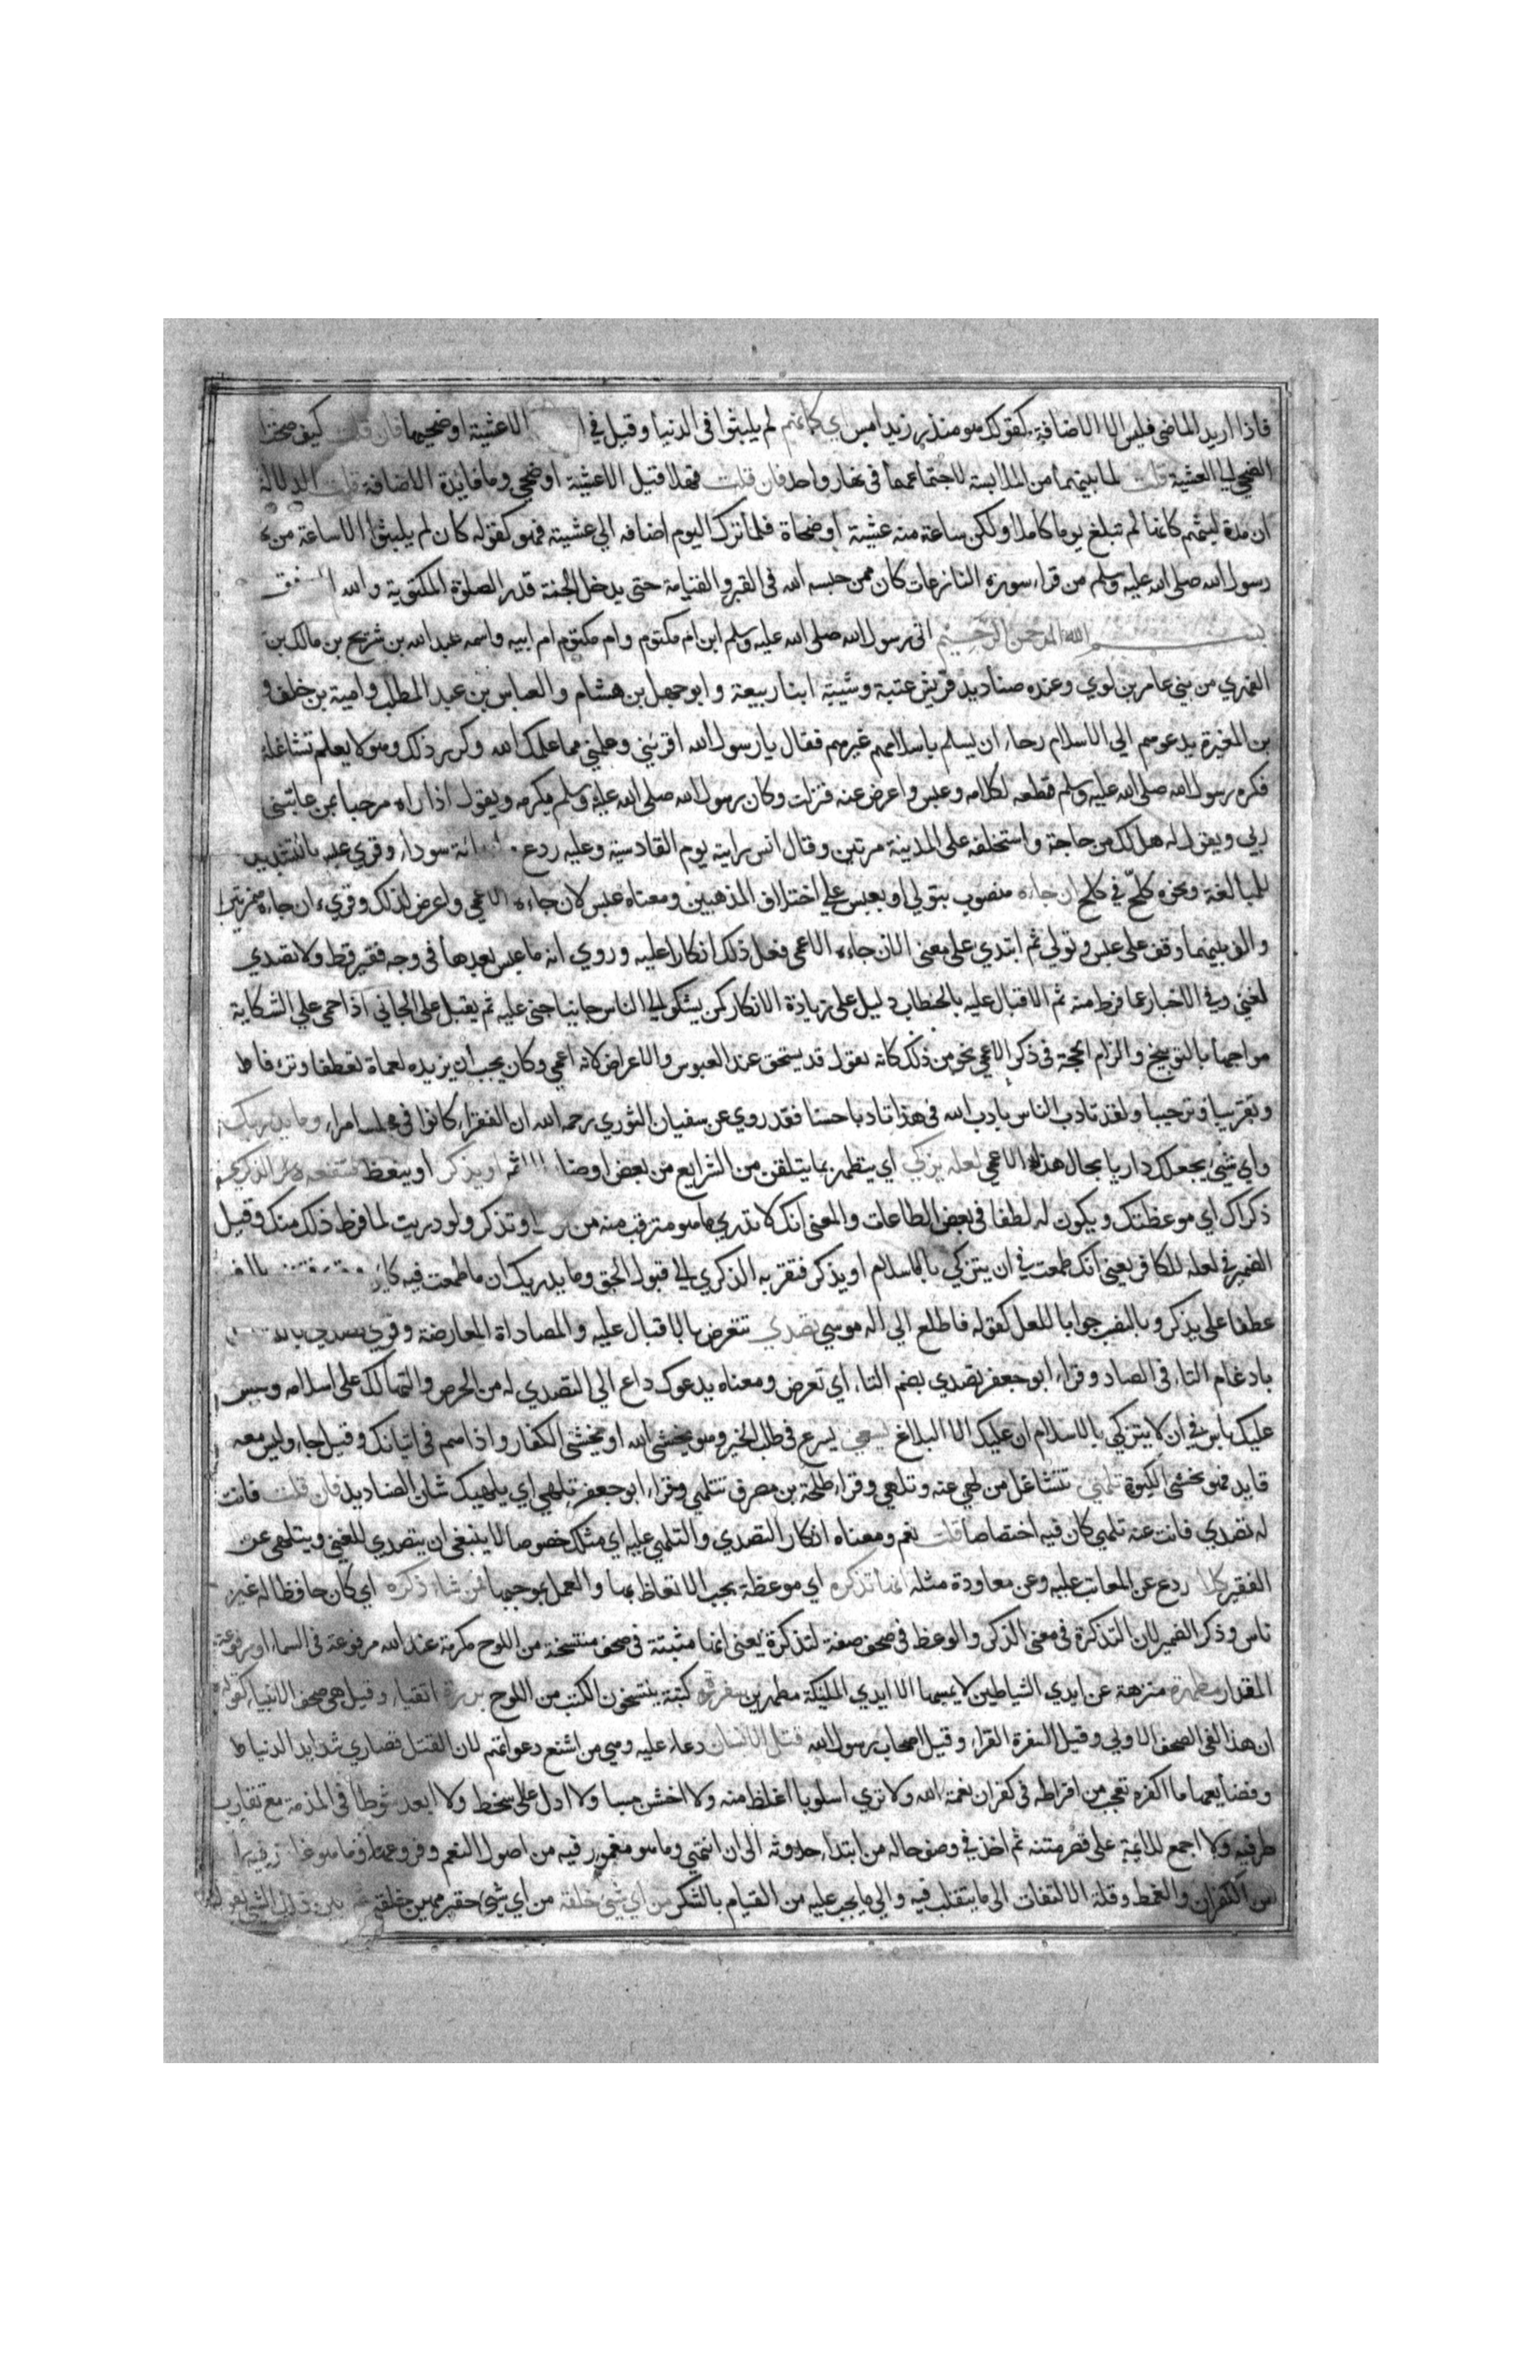 فاذا اريد الماضي فليس الا الاضافة كقولك هو منذر زيد امس اي كانهم لم يلبثوا في الدنيا وقيل في الا عشية او ضحيها فان قلت كيف صحت
الضحي الي العشية قلت لما بينهما من الملابسة لاجتماعهما في نهار واحد فان قلت فهلا قيل الا عشية او ضحي وما فايدة الاضافة قلت الدلالة
ان مدة لبثهم كانها لم تبلغ يوما كاملا ولكن ساعة منه عشيته او ضحاة فلما ترك اليوم اضافه الي عشيته فهو كقوله كان لم يلبثوا الا ساعة من
رسول الله صلي الله عليه وسلم من قراء سورة النازعات كان ممن حبسه الله في القبر والقيامة حتي يدخل الجنة قدر الصلوة المكتوبة والله
بسم الله الرحمن الرحيم اتي رسول الله صلي الله عليه وسلم ابن ام مكتوم وام مكتوم ام ابيه واسمه عبد الله بن شريح بن مالك بن
الفهري من بني عامر بن لوي وعنده صناديد قريش عتبة وشيبة ابنا ربيعة وابو جهل بن هشام والعباس بن عبد المطلب وامية بن خلف و
بن المغيرة يدعوهم الي الاسلام رجاء ان يسلم باسلامهم غيرهم فقال يا رسول الله اقرئني وعلمني مما علمك الله وكرر ذلك وهو لا يعلم تشاغله
فكره رسول الله صلي الله عليه وسلم قطعه لكلامه وعبس واعرض عنه فنزلت وكان رسول الله صلي الله عليه وسلم يكرمه ويقول اذا راه مرحبا بمن عاتبني
ربي ويقول له هل لك من حاجة واستخلفه علي المدينة مرتين وقال انس رايته يوم القادسية وعليه درع سوداء وقري عبس بالتشديد
للمبالغة ونحوه كلح في كلح ان جاءه منصوب بتولي او بعبس علي اختلاف المذهبين ومعناه عبس لان جاءه الاعمي واعرض لذلك وقري ان جاءه بهمزتين
والف بينهما وقف علي عبس وتولي ثم ابتدي علي معني الان جاءه الاعمي فعل ذلك انكارا عليه وروي انه ما عبس بعدها في وجه فقير قط ولا تصدي
لغني وفي الاخبار عما فرط منه ثم الاقبال عليه بالخطاب دليل علي زيادة الانكار كمن يشكو الي الناس جانيا جني عليه ثم يقبل علي الجاني اذا حمي علي الشكاية
مواجها بالتوبيخ والزام الحجة في ذكر الاعمي نحو من ذلك كانه يقول قد يستحق عند العبوس والاعراض لانه اعمي وكان يجب ان يزيده لعماة تعطفا وترءفا
وتقريبا وترحيبا ولقد تادب الناس بادب الله في هذا تادبا حسنا فقد روي عن سفيان الثوري رحمه الله ان الفقراء كانوا في مجلسه امراء وما يدريك
واي شيئ يجعلك داريا بحال هذا الاعمي لعله يزكي اي يتطهر بما يتلقن من الشرايع من بعض اوضار الاثم او يذكر او يتعظ فتنفعه الذكري
ذكراك اي موعظتك ويكون له لطفا في بعض الطاعات والمعني انك لا تدري ما هو مترقب منه من او تذكر ولو دريت لما فرط ذلك منك وقيل
الضمير في لعله للكافر يعني انك طمعت في ان يتزكي بالاسلام او يذكر فتقربه الذكري الي قبول الحق وما يدريك ان ما طمعت فيه كاين
عطفا علي يذكر وبالنصب جوابا للعل كقوله فاطلع الي اله موسي تصدي تتعرض بالاقبال عليه والمصاداة المعارضة وقري تصدي
بادغام التاء في الصاد وقراء ابو جعفر تصدي بضم التاء اي تعرض ومعناه يدعوك داع الي التصدي له من الحرص والتهالك علي اسلامه وليس
عليك باس في ان لا يتزكي بالاسلام ان عليك الا البلاغ يسعي يسرع في طلب الخير وهو يخشي الله او يخشي الكفار واذاهم في اتيانك وقيل جاء وليس معه
قايد فهو يخشي الكبوة تلهي تتشاغل من لهي عنه وتلهي وقراء طلحة بن مصرف تتلهي وقراء ابو جعفر تلهي اي يلهيك شان الصناديد فان قلت فانت
له تصدي فانت عنه تلهي كان فيه اختصاصا قلت نعم ومعناه انكار التصدي والتلهي عليه اي مثلك خصوصا لا ينبغي ان يتصدي للغني ويتلهي عن
الفقير كلا ردع عن المعاتب عليه وعن معاودة مثله انها تذكرة اي موعظة يجب الاتعاظ بها والعمل بموجبها فمن شاء ذكره اي كان حافظا له غير
ناس وذكر الضمير لان التذكرة في معني الذكر والوعظ في صحف صفة لتذكرة يعني انها مثبتة في صحف منتسخة من اللوح مكرمة عند الله مرفوعة في السماء او مرفوعة
المقدار مطهرة منزهة عن ايدي الشياطين لا يمسها الا ايدي الملئكة مطهرين سفرة كتبة ينتسخون الكتب من اللوح بررة اتقياء وقيل هي صحف الانبياء كقوله
ان هذا لفي الصحف الاولي وقيل السفرة القراء وقيل اصحاب رسول الله قتل الانسان دعاء عليه وهي من اشنع دعواتهم لان القتل قصاري شدايد الدنيا
وفضايعها ما اكفره تعجب من افراطه في كفران نعمة الله ولا تري اسلوبا اغلظ منه ولا اخشن مسا ولا ادل علي سخط ولا ابعد شوطا في المذمة مع تقارب
طرفيه ولا اجمع للايمة علي قصر متنه ثم اخذ في وصف حاله من ابتداء حدوثه الي ان انتهي وما هو مغمور فيه من اصول النعم وفروعها وما هو
من الكفران والغمط وقلة الالتفات الي ما يتقلب فيه والي ما يجب عليه من القيام بالشكر من اي شيئ خلقه من اي شيئ حقير مهين خلقه